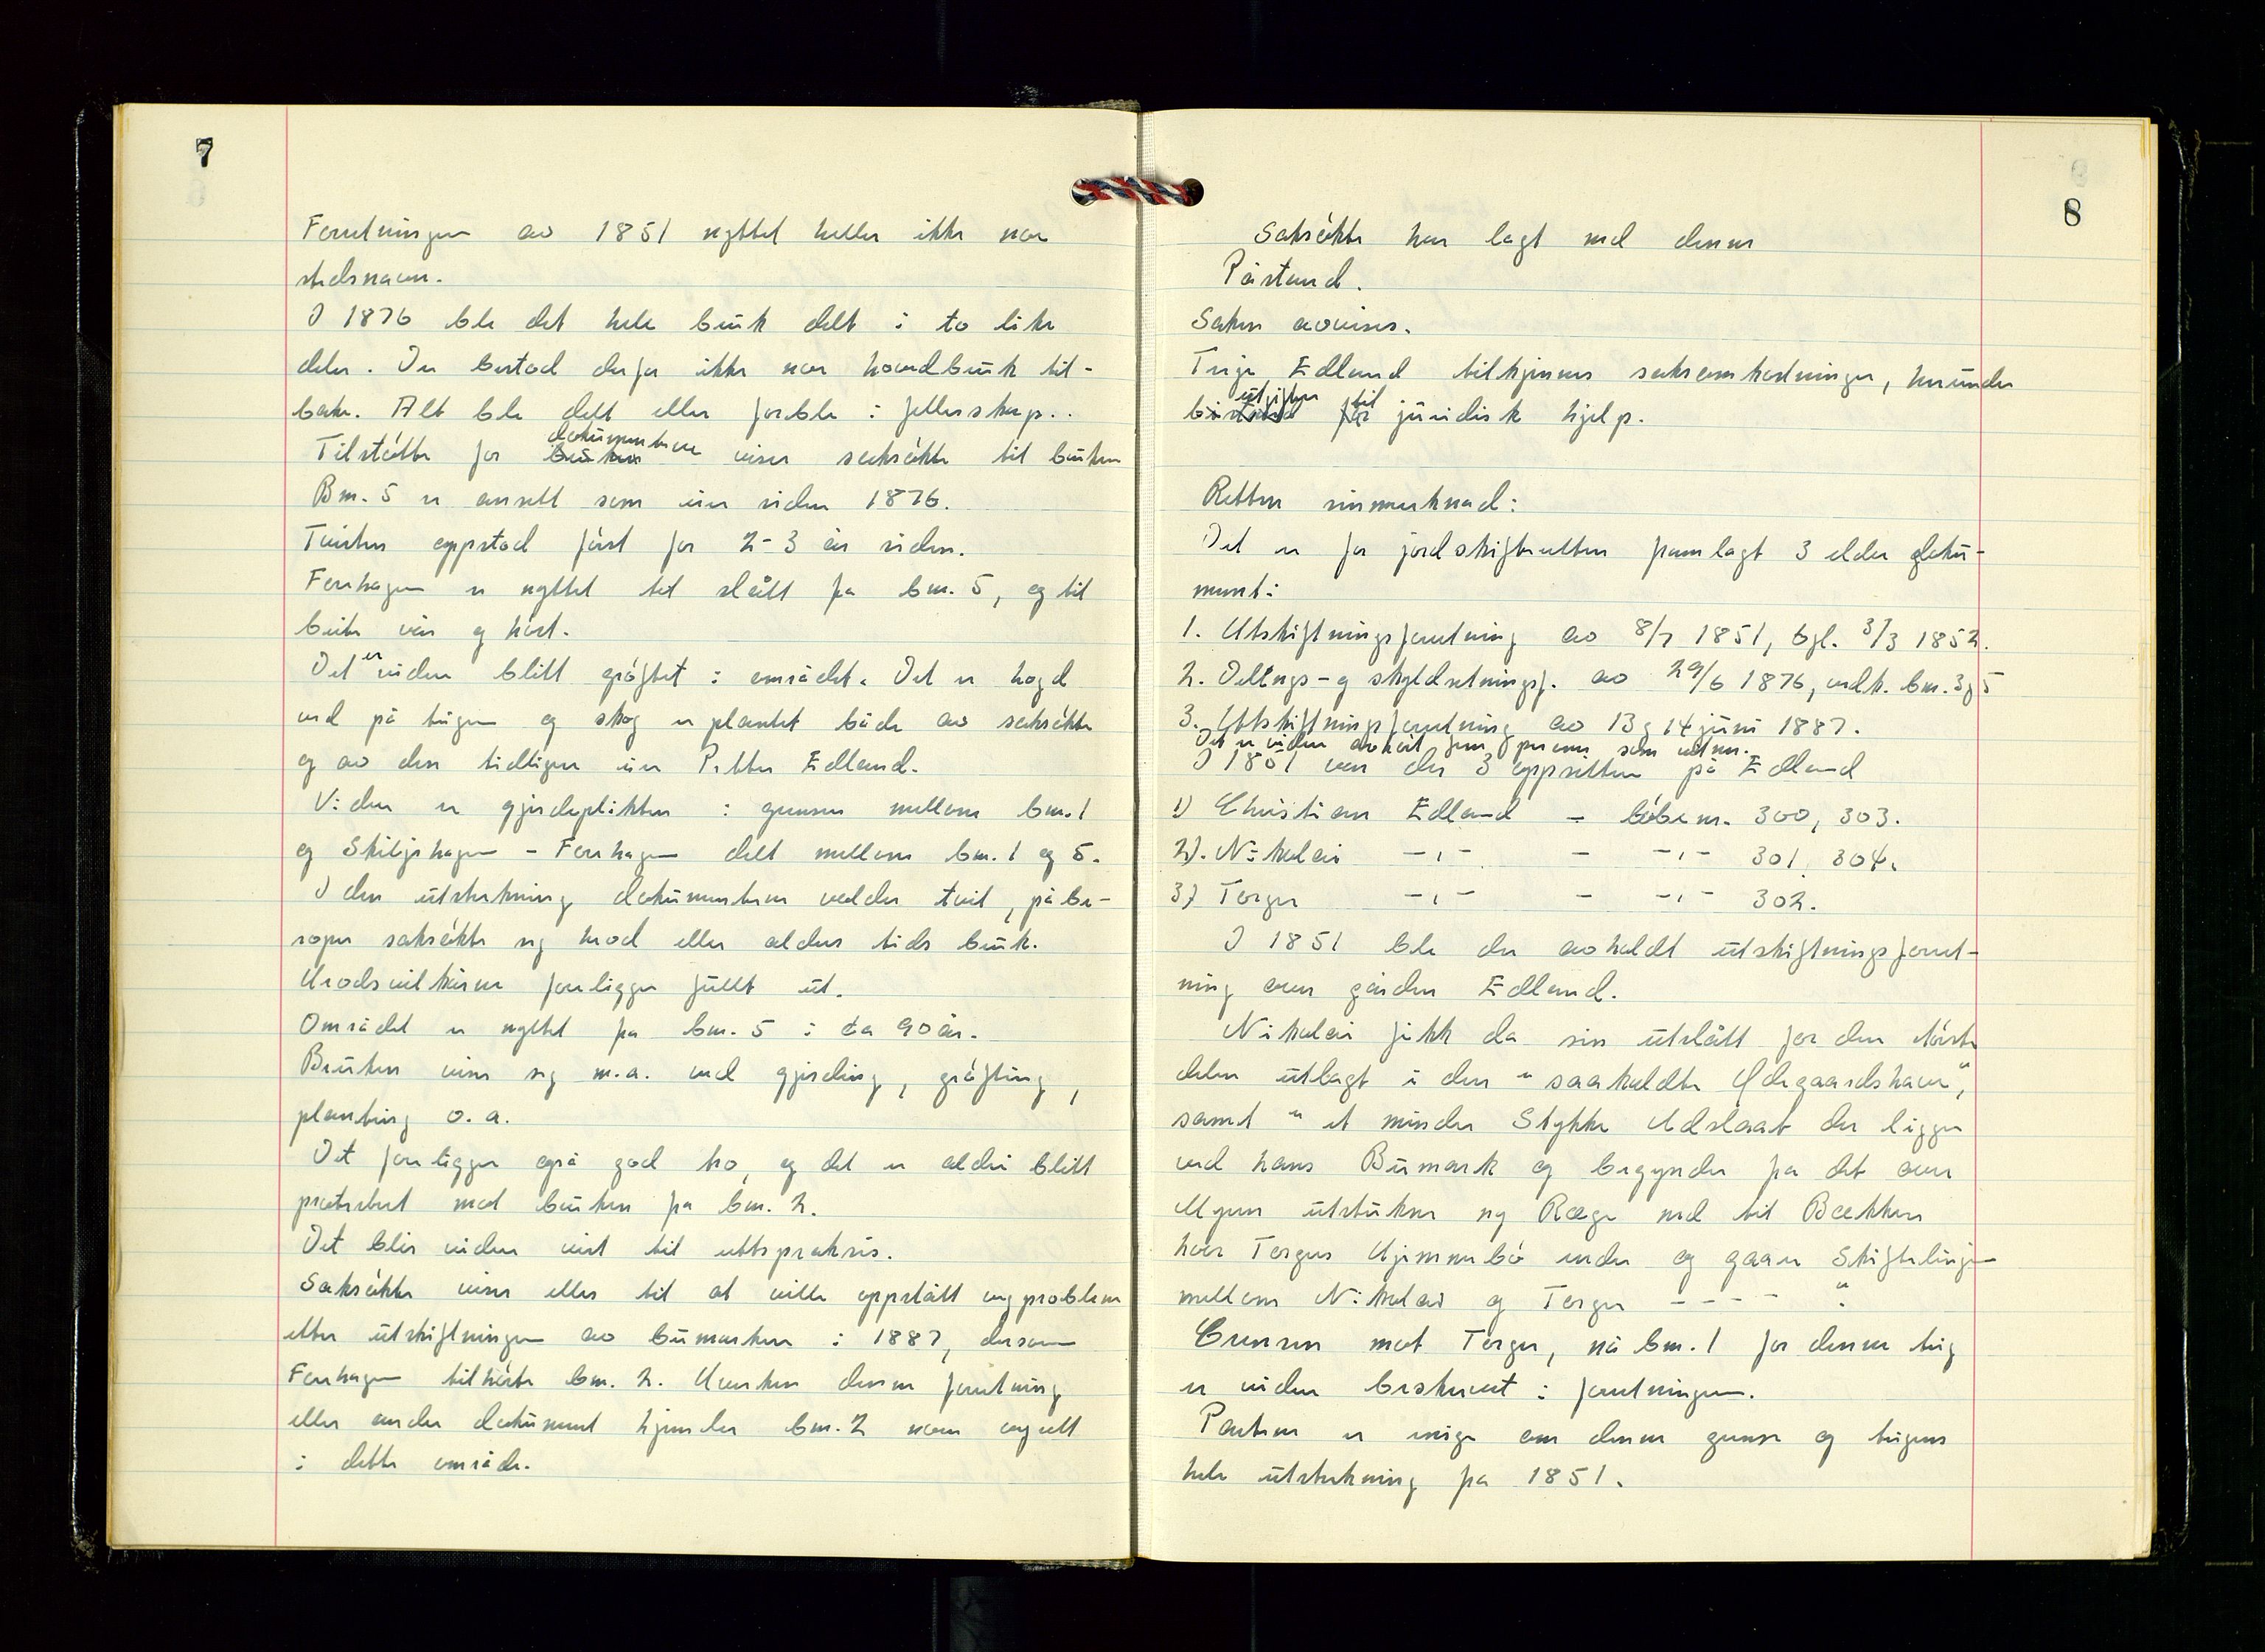 7
Forretningen av 1851 nyttet heller ikke noe
stedsnavn.
I 1876 ble det hele bruk delt i to like
deler. Der bestod derfor ikke noe hovedbruk til-
bake. Alt ble delt eller forble i fellesskap..
Til støtte for dokumentene viser saksøkte til bruken
Bnr. 5 er ansett som eier siden 1876.
Tvisten oppstod først for 2-3 år siden.
Forrhagen er nyttet til slått fra bnr. 5, og til
beite vår og høst.
Det er viden blitt grøftet i området. Det er hogd
ved på teigen og skog er plantet både av saksøkte
og av den tidligere eier Petter Edland.
Viden er gjerdeplikten i grensen mellom bnr. 1
og Skiljehagen - Forrhagen delt mellom bnr. 1 og 5.
I den utstrekning dokumentene volder tvil, påbe-
roper saksøkte seg hevd eller alders tids bruk.
Hevdsvilkårene foreligger fullt ut.
Området er nyttet fra bnr. 5 i ca 90 år.
Bruken viser seg m.a. ved gjerding, grøfting,
planting o.a.
Det foreligger også god tro, og det er aldri blitt
protestert mot bruken fra bnr. 2.
Det blir viden vist til rettspraksis.
Saksøkte viser ellers til at ville oppstått vegproblem
etter utskiftningen av bumarken i 1887, dersom
Forrhagen tilhørte bnr. 2. Hverken denne forretning
eller andre dokument kjenner bnr. 2 noen vegrett
i dette område.
8
Saksøkte har lagt ned denne
Påstand.
Saken avvises.
Terje Edland tilkjennes saksomkostninger, herunder
utgifter til
bistand for juridisk hjelp.
Retten sin merknad:
Det er for jordskifteretten framlagt 3 eldre doku-
ment:
1. Utskiftningsforretning av 8/7 1851, tgl. 3/3 1852.
2. Delings- og skyldsetningsf. av 29/6 1876, vedk. bnr. 3 og 5
3. Utskiftningsforretning av 13 og 14 juni 1887.
Det er viden avhørt fem personer som vitner.
I 1851 var der 3 oppsittere på Edland
1) Christian Edland - løbenr. 300, 303.
2). Nikolai -"- - -"- 301, 304.
3) Torger -"- - -"- 302.
I 1851 ble der avholdt utskiftningsforret-
ning over gården Edland.
Nikolai fikk da sin utslått for den største
delen utlagt i den "saakaldte Ødegaardshave",
samt "et mindre Stykke Udslaat der ligger
ved hans Bumark og begynder fra det over
Myren utstukne ny Ræge ned til Bækken
hvor Torgers Hjemmebø ender og gaar Skiftelinjen
mellem Nikolai og Torger - - - - "
Grensen mot Torger, nå bnr. 1 for denne teig
er viden beskrevet i forretningen.
Partene er enige om denne grense og teigens
hele utstrekning fra 1851.